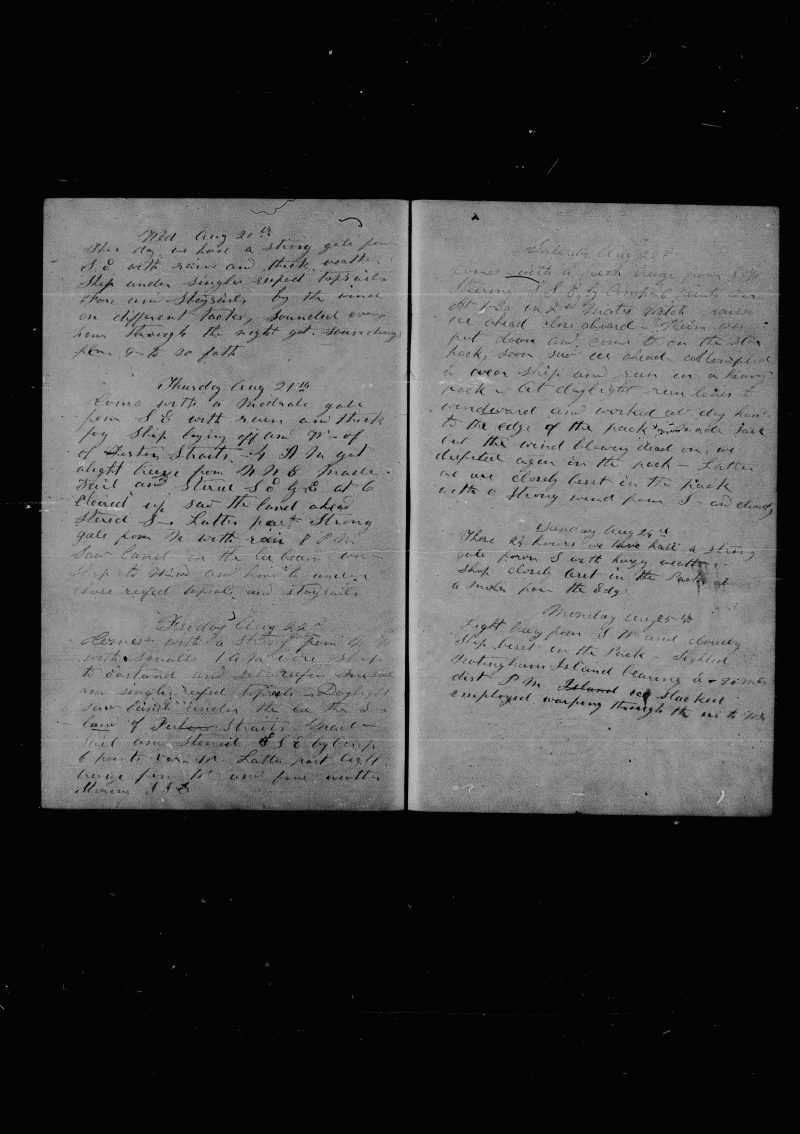 Wed Aug 20th
This day we have a strong gale from
S E with rain and thick weather
Ship under single reefed topsails
Fore and Staysails by the wind
on different tacks, sounded every
hour through the night got soundings
from 9 to 20 fath
Thursday Aug 21th
Comes with a Modrate gale
from S E with rain and thick
fog Ship laying off and W of
of Straits 4 A M got
alight breeze from N N E made
Sail and Stered S E at 6
Cleared up saw the land ahead
Stered S Latter part Strong
gale from N with rain 8 P M
Saw land on the lee beam wore
ship to and hove to under
close reefed topsails and staysails
Friday Aug 22
Comes with a strong from
with squalls 1 A M wore ship
to eastward and set reefed
single reefed topsails Daylight
saw land under the lee the S
land of Straits Made
Sail and Stered E S E by Comp
6 points var W Latter part light
breeze from W and fine weather
Stering S S E
Saturday Aug 23d
Comes with a fresh breeze from S W
Steering S S E by Comp 6 points var
At 1-30 in 2nd Mates Watch raised
ice ahead close aboard Helm was
put down and come to on the star
tack, soon saw ice ahead attempted
to wear ship and run in a heavy
pack at daylight run lines to
windward and worked all day hard
to the edge of the pack made sail
but the wind blowing dead on we
drifted again in the pack Latter
we are closely beset in the pack
with a Strong wind from S and cloudy
Sunday Aug 24th
These 24 hours we have had a strong
gale from S with heavy weather
Ship closely beset in the Pack at
a miles from the Edge
Monday Aug 25th
Light breeze from S W and cloudy
Ship beset in the Pack Sighted
Notingham Island bearing
dist P M Island ice slacked
employed warping through the ice to